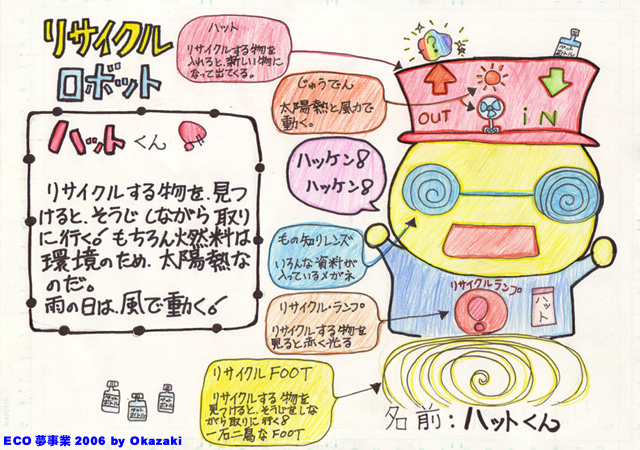 リサイクル
ロボット
ハットくん
リサイクルする物を、見つ
けると、そうじしながら取り
に行く。もちろん燃料は
環境のため、太陽熱な
のだ。
雨の日は、風で動く。
ハット
リサイクルする物を
入れると、新しい物に
なって出てくる。
じゅうでん
太陽熱と風力で
動く。
OUT
iN
ハッケン!
ハッケン!
もの知りレンズ
いろんな資料が
入っているメガネ
リサイクル・ランプ
リサイクルする物を
見ると赤く光る
リサイクルランプ
ハット
リサイクルFOOT
リサイクルする物を
見つけると、そうじをしな
がら取りに行く!
一石二鳥なFOOT
名前:ハットくん
ECO夢事業 2006 by Okazaki